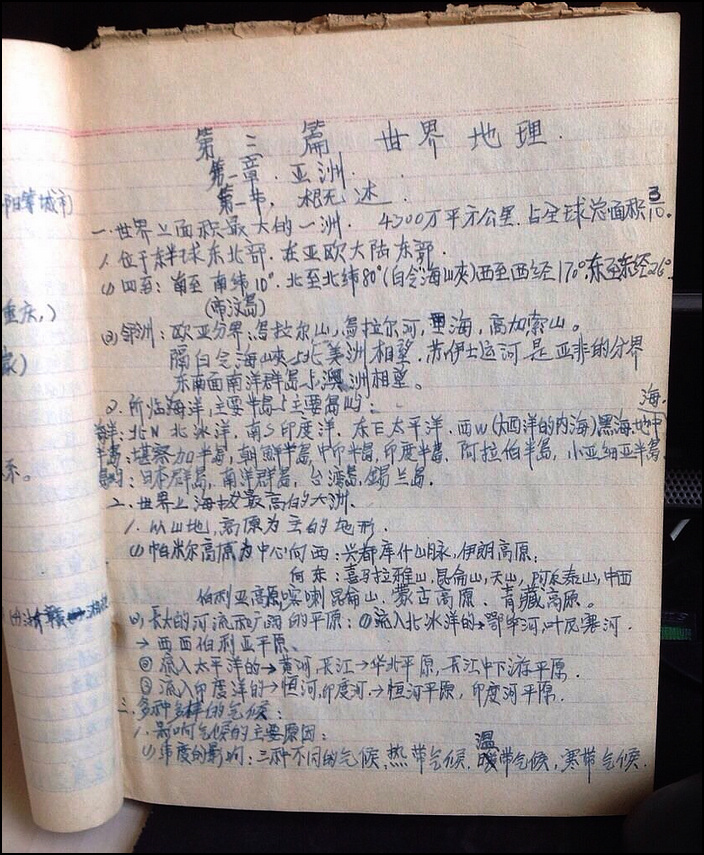 第三篇 世界地理.
第一章. 亚洲.
第一节. 概述.
一.世界上面积最大的一洲. 4300万平方公里.占全球总面积3/10。
1.位于东半球东北部.在亚欧大陆东部.
(1)四至:南至南纬10°.北至北纬80°(白令海峡)西至西经170°,东至东经26°.
(帝汶岛)
(2)邻洲:欧亚分界,乌拉尔山,乌拉尔河,里海,高加索山。
隔白令海峡与北美洲相望.苏伊士运河是亚非的分界
东南面南洋群岛与澳洲相望。
海.
2.所临海洋,主要半岛与主要岛屿:
海洋:北N北冰洋.南S印度洋.东E太平洋.西W(大西洋的内海)黑海.地中
半岛:堪察加半岛,朝鲜半岛,中印半岛,印度半岛.阿拉伯半岛,小亚细亚半岛.
岛屿:日本群岛,南洋群岛,台湾岛,锡兰岛.
二.世界上海拔最高的大洲.
1.以山地,高原为主的地形.
(1)帕米尔高原为中心向西:兴都库什山脉,伊朗高原;
向东:喜马拉雅山,昆仑山,天山,阿尔泰山,中西
伯利亚高原喀喇昆仑山,蒙古高原.青藏高原。
(2)长大的河流和广阔的平原:①流入北冰洋的→鄂毕河,叶尼塞河.
→西西伯利亚平原.
②流入太平洋的→黄河,长江→华北平原,长江中下游平原.
③流入印度洋的→恒河,印度河→恒河平原,印度河平原.
三.多种多样的气候:
1.影响气候的主要原因:
温
(1)纬度的影响:三种不同的气候,热带气候.暖带气候,寒带气候.
阳等城市)
重庆,)
家)
系。